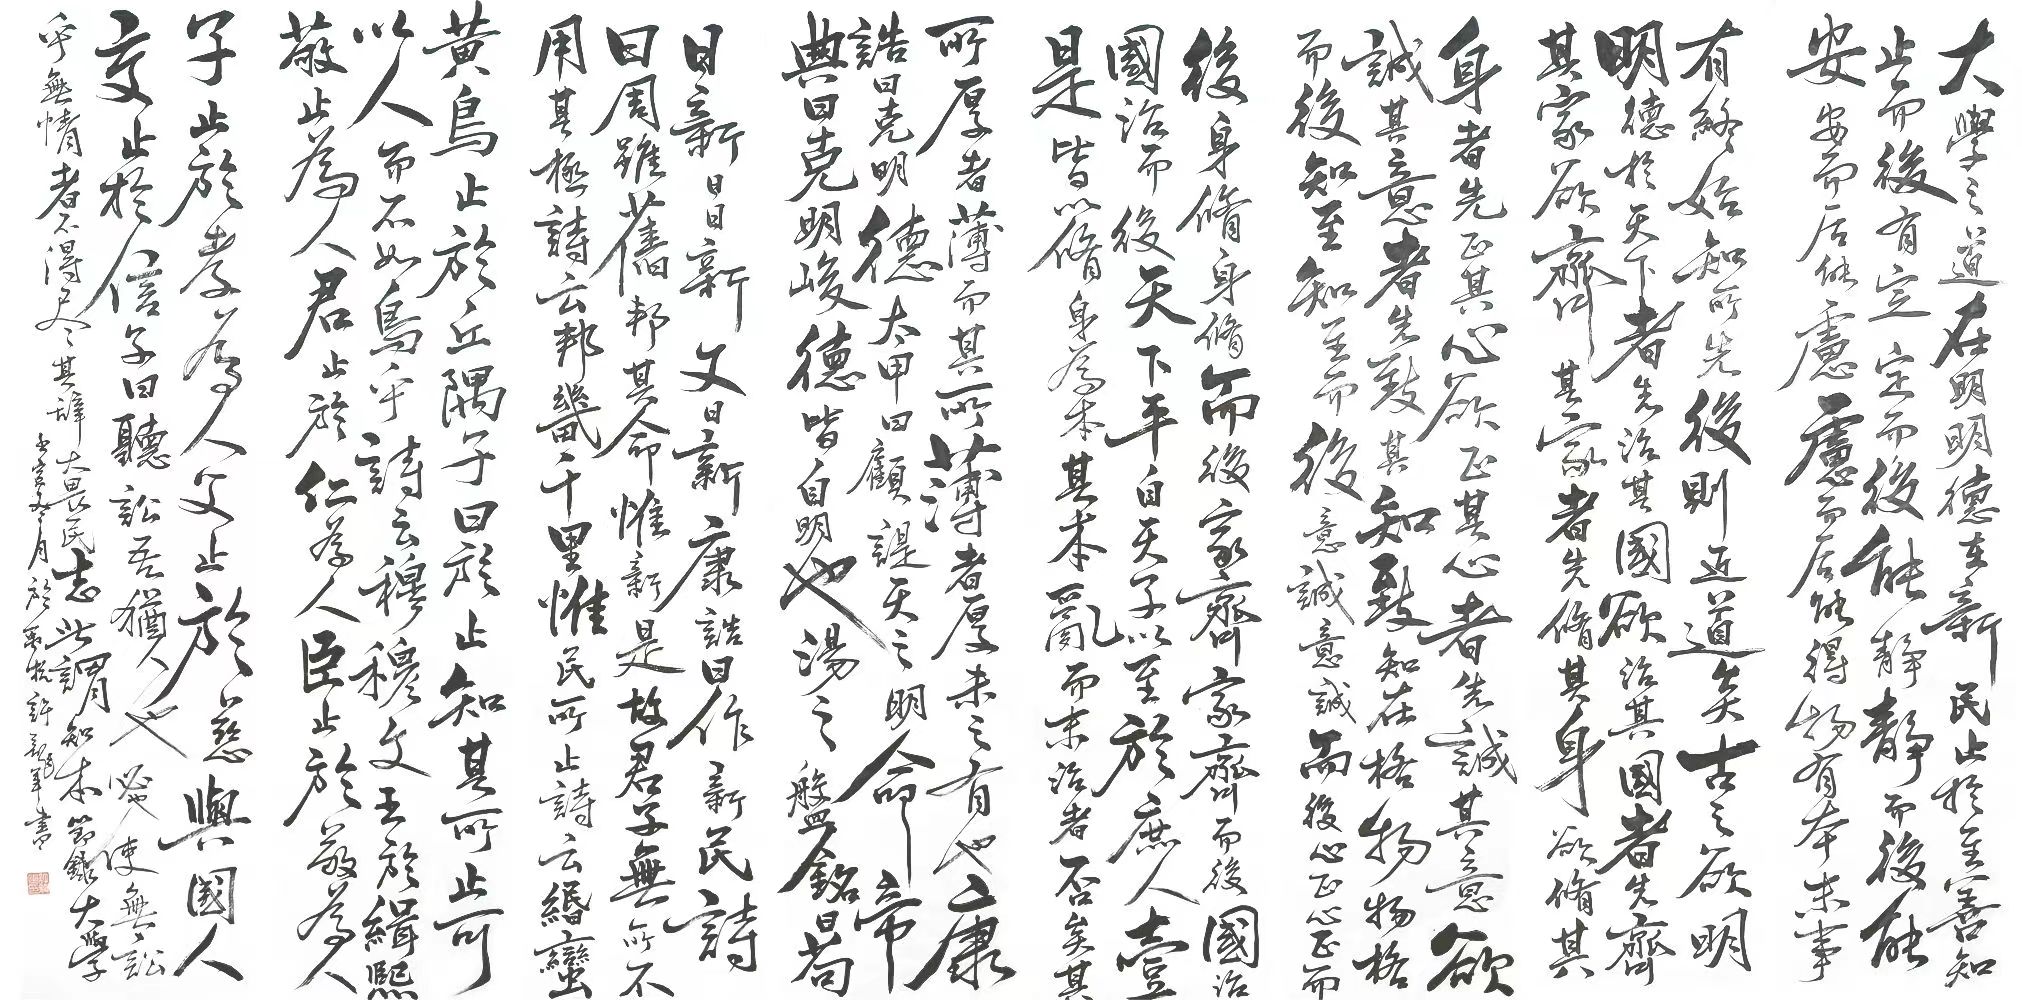 大學之道在明明德在新民止於至善知
止而後有定定而後能靜靜而後能
安安而后能慮慮而后能得物有本末事
有終始知所先後則近道矣古之欲明
明德於天下者先治其國欲治其國者先齊
其家欲齊其家者先脩其身欲脩其
身者先正其心欲正其心者先誠其意欲
誠其意者先致其知致知在格物物格
而後知至知至而後意誠意誠而後心正心正而
後身脩身脩而後家齊家齊而後國治
國治而後天下平自天子以至於庶人壹
是皆以脩身為本其本亂而末治者否矣其
所厚者薄而其所薄者厚未之有也康
誥曰克明德太甲曰顧諟天之明命帝
典曰克明峻德皆自明也湯之盤銘曰苟
日新日日新又日新康誥曰作新民詩
曰周雖舊邦其命惟新是故君子無所不
用其極詩云邦畿千里惟民所止詩云緡蠻
黃鳥止於丘隅子曰於止知其所止可
以人而不如鳥乎詩云穆穆文王於緝熙
敬止為人君止於仁為人臣止於敬為人
子止於孝為人父止於慈與國人
交止於信子曰聽訟吾猶人也必也使無訟
乎無情者不得盡其辭大畏民志此謂知本節錄大學
壬寅冬月於萬松許龍軍書